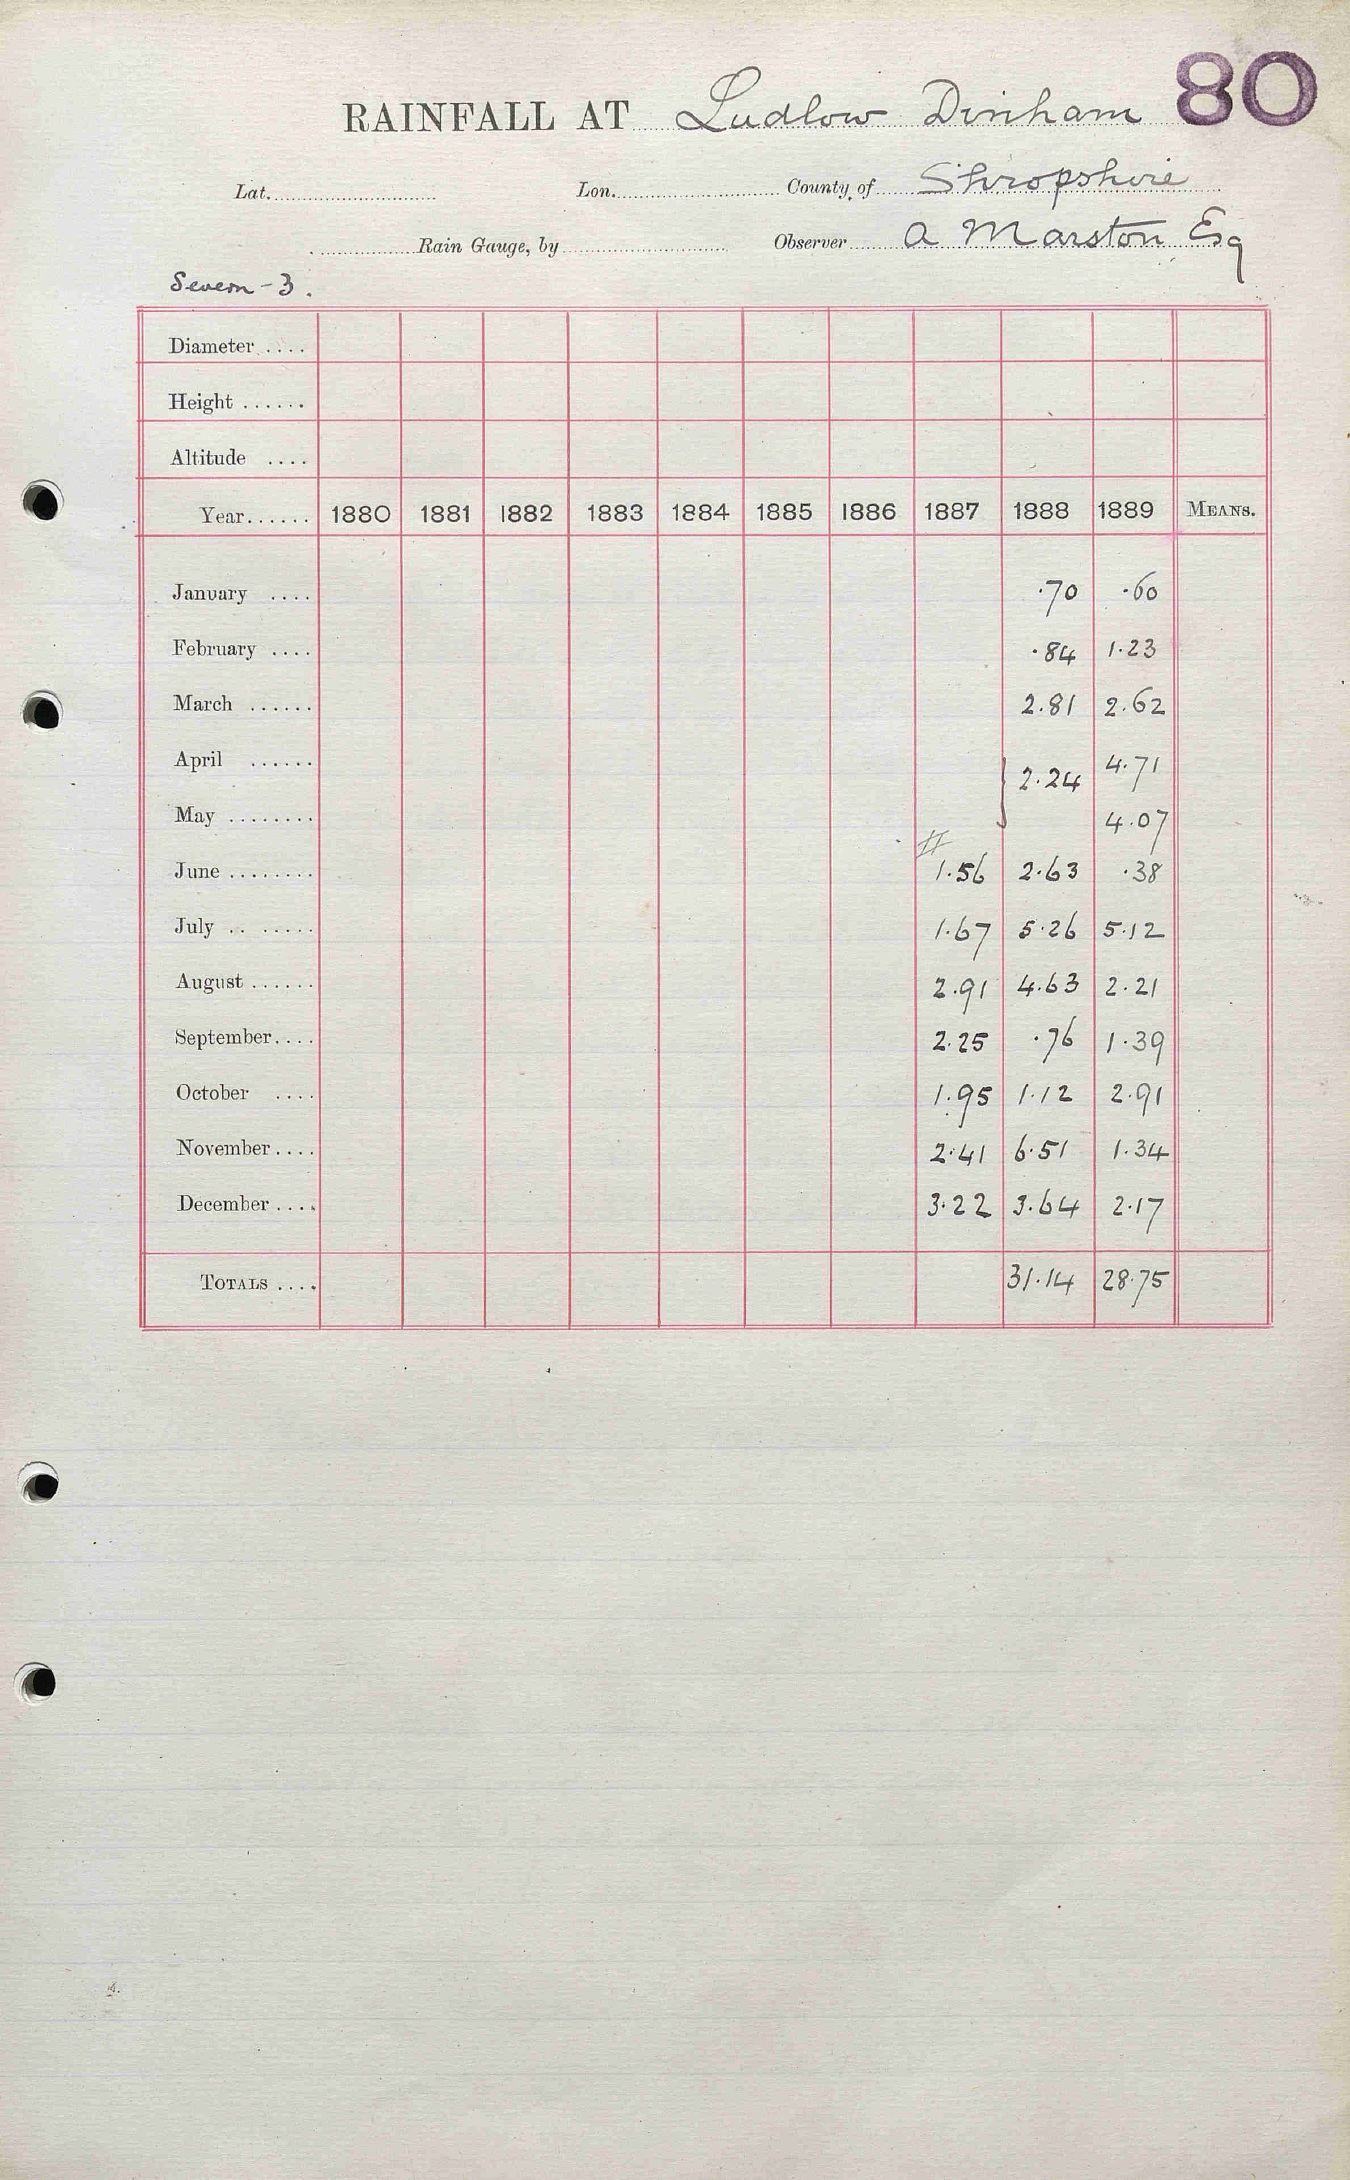 80
RAINFALL AT Ludlow Dinham
Lat. Lon. County of Shropshire
Rain Gauge, by Observer A Marston Esq
Severn - 3.
Diameter ....
Height ......
Altitude ....
Year...... 1880 1881 1882 1883 1884 1885 1886 1887 1888 1889 MEANS.
January .... .70 .60
February .... .84 1.23
March ...... 2.81 2.62
April ...... } 2.24 4.71
May ........ 4.07
#
June ........ 1.56 2.63 .38
July .. ..... 1.67 5.26 5.12
August ...... 2.91 4.63 2.21
September.... 2.25 .76 1.39
October .... 1.95 1.12 2.91
November.... 2.41 6.51 1.34
December .... 3.22 3.64 2.17
TOTALS .... 31.14 28.75